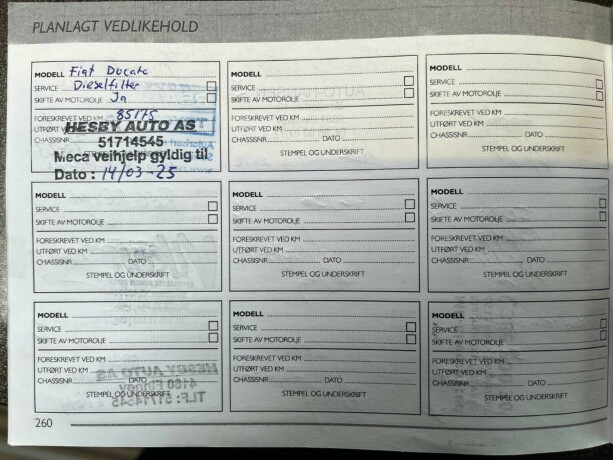 PLANLAGT VEDLIKEHOLD
MODELL Fiat Ducato
SERVICE Dieselfilter
SKIFTE AV MOTOROLJE Ja
FORESKREVET VED KM 85175
UTFØRT VED KM
CHASSISNR.
HESBY AUTO AS
51714545
Meca veihjelp gyldig til
Dato : 14/03-25
MODELL
SERVICE
SKIFTE AV MOTOROLJE
FORESKREVET VED KM
UTFØRT VED KM
CHASSISNR. DATO
STEMPEL OG UNDERSKRIFT
MODELL
SERVICE
SKIFTE AV MOTOROLJE
FORESKREVET VED KM
UTFØRT VED KM
CHASSISNR. DATO
STEMPEL OG UNDERSKRIFT
MODELL
SERVICE
SKIFTE AV MOTOROLJE
FORESKREVET VED KM
UTFØRT VED KM
CHASSISNR. DATO
STEMPEL OG UNDERSKRIFT
MODELL
SERVICE
SKIFTE AV MOTOROLJE
FORESKREVET VED KM
UTFØRT VED KM
CHASSISNR. DATO
STEMPEL OG UNDERSKRIFT
MODELL
SERVICE
SKIFTE AV MOTOROLJE
FORESKREVET VED KM
UTFØRT VED KM
CHASSISNR. DATO
STEMPEL OG UNDERSKRIFT
MODELL
SERVICE
SKIFTE AV MOTOROLJE
FORESKREVET VED KM
UTFØRT VED KM
CHASSISNR. DATO
STEMPEL OG UNDERSKRIFT
HESBY AUTO AS
TLF: 51714545
MODELL
SERVICE
SKIFTE AV MOTOROLJE
FORESKREVET VED KM
UTFØRT VED KM
CHASSISNR. DATO
STEMPEL OG UNDERSKRIFT
MODELL
SERVICE
SKIFTE AV MOTOROLJE
FORESKREVET VED KM
UTFØRT VED KM
CHASSISNR. DATO
STEMPEL OG UNDERSKRIFT
260